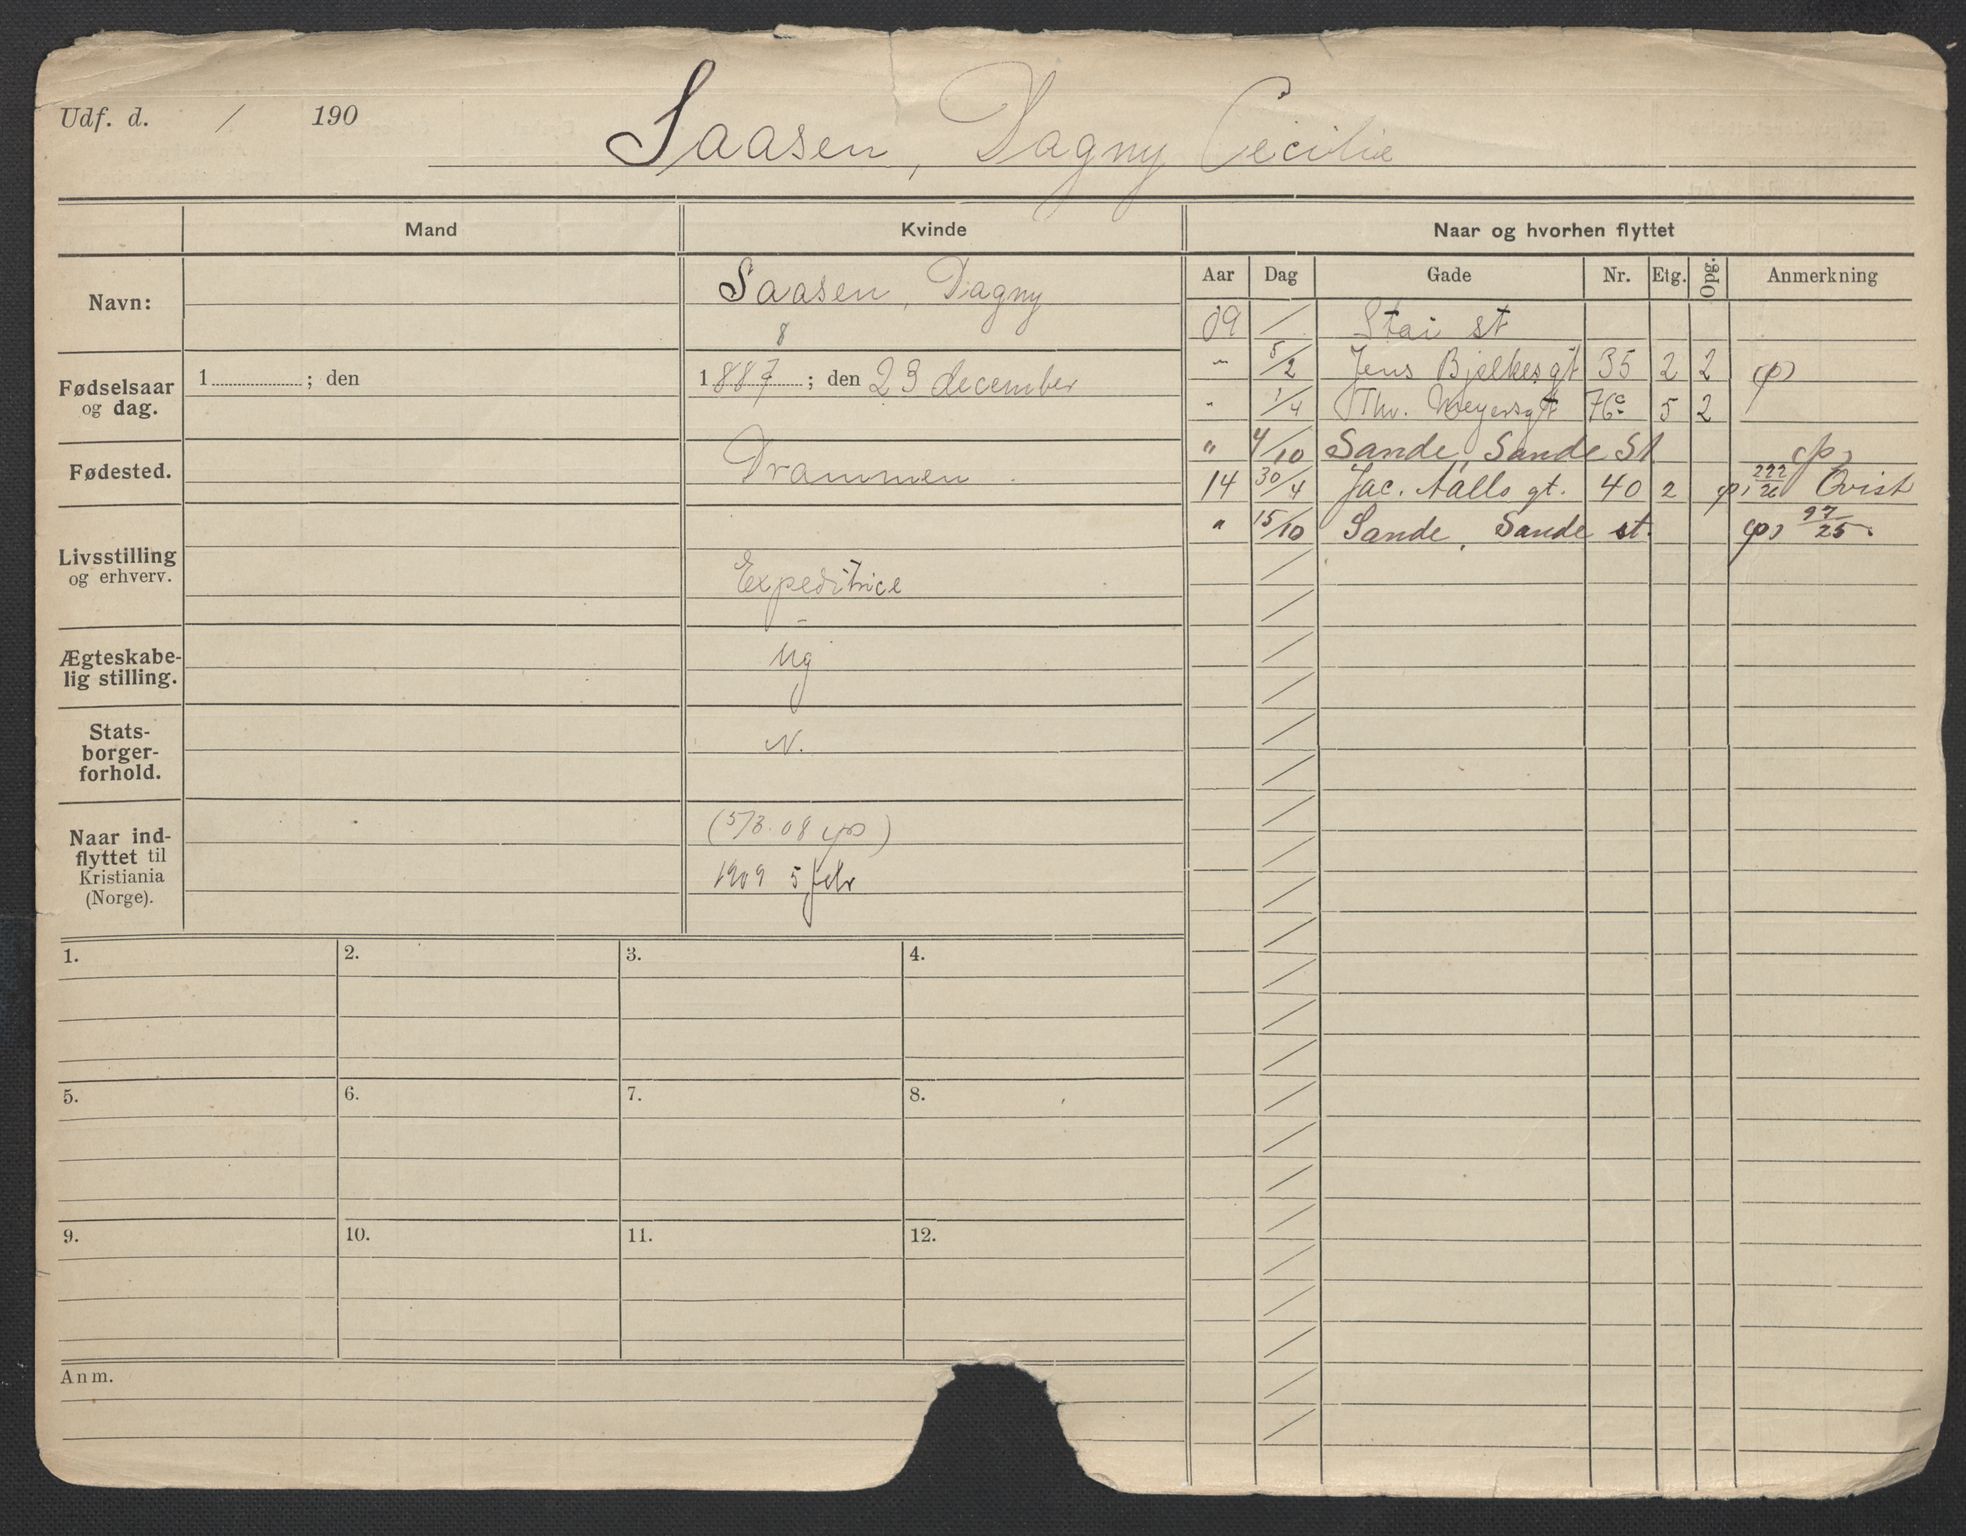 Udf. d. / 190
Saasen, Dagny Cecilie
Mand Kvinde Naar og hvorhen flyttet
Aar Dag Gade Nr. Etg. Opg. Anmerkning
Navn: Saasen, Dagny
8
Fødselsaar og dag. 1 ; den 1887 ; den 23 december
Fødested. Drammen
Livsstilling og erhverv. Expeditrice
Ægteskabelig stilling. Ug
Statsborgerforhold. N.
Naar indflyttet til Kristiania (Norge). (5/3. 08 ps)
1909 5 febr
09 / Stai st
" 5/2 Jens Bjelkesgt 35 2 2 ps
" 1/4 Thv. Meyersgt 76c 5 2
" 4/10 Sande, Sande St ps
14 30/4 Jac. Aalls gt. 40 2 ps 222/26 Qvist
" 15/10 Sande, Sande st. ps 97/25.
1. 2. 3. 4.
5. 6. 7. 8.
9. 10. 11. 12.
Anm.